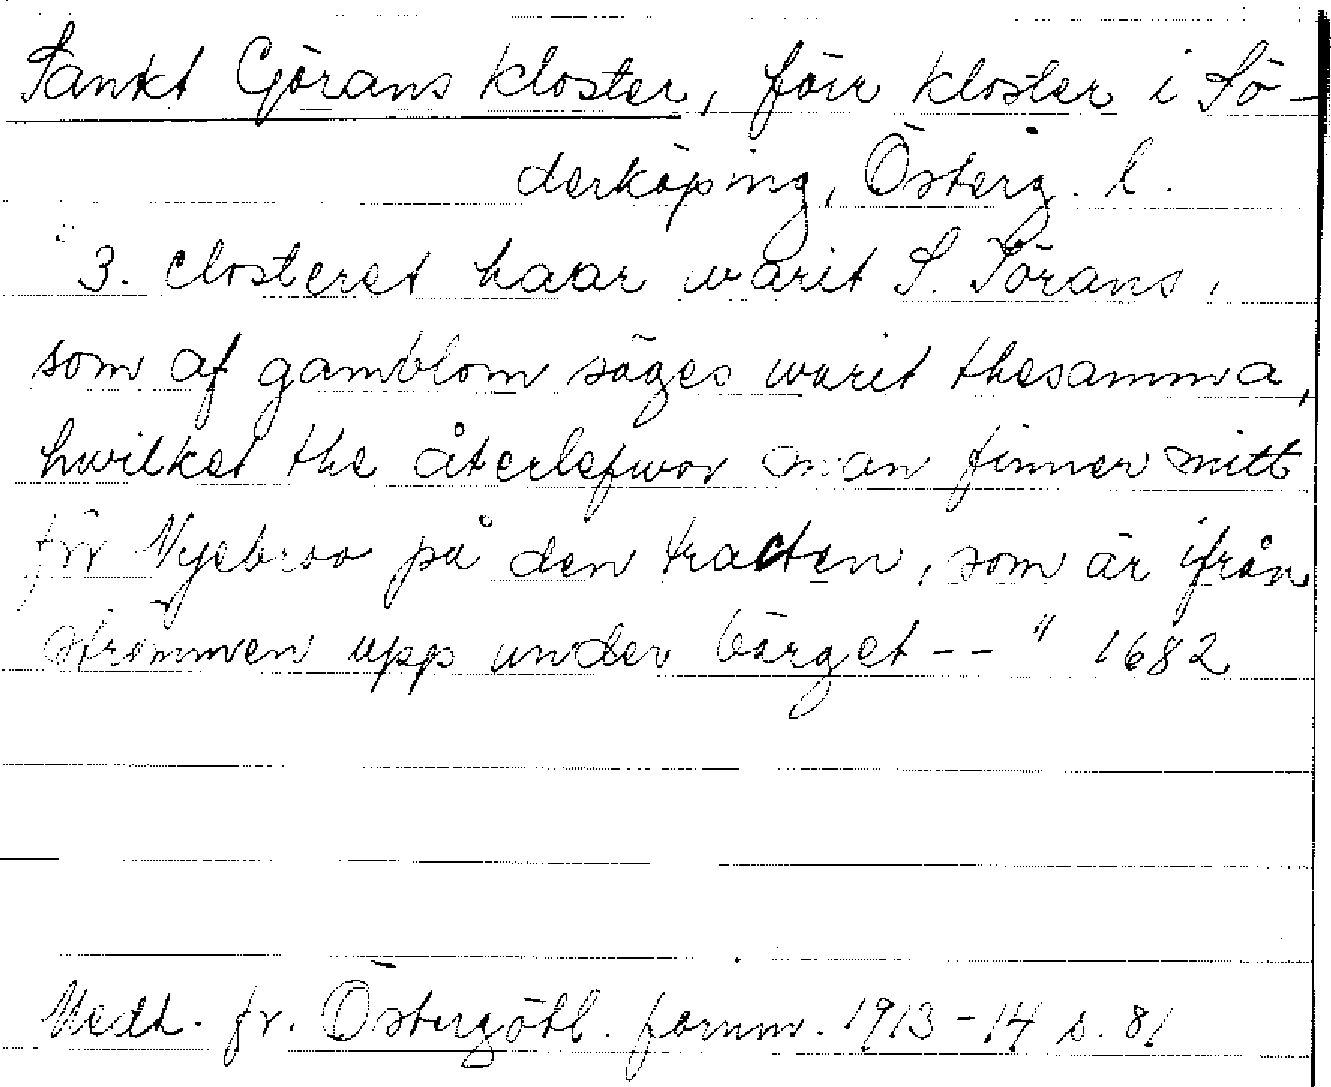 Sankt Görans kloster, förr kloster i Sö-
derköping, Österg. l.
"3. closteret haar warit S. Jörans,
som af gamblom säges warit thesamma,
hwilket the återlefwor man finner mitt
för Nyebroo på den tracten, som är ifrån
strömmen upp under bärget--" 1682
Medd. fr. Östergötl. fornm. 1913-14 s. 81